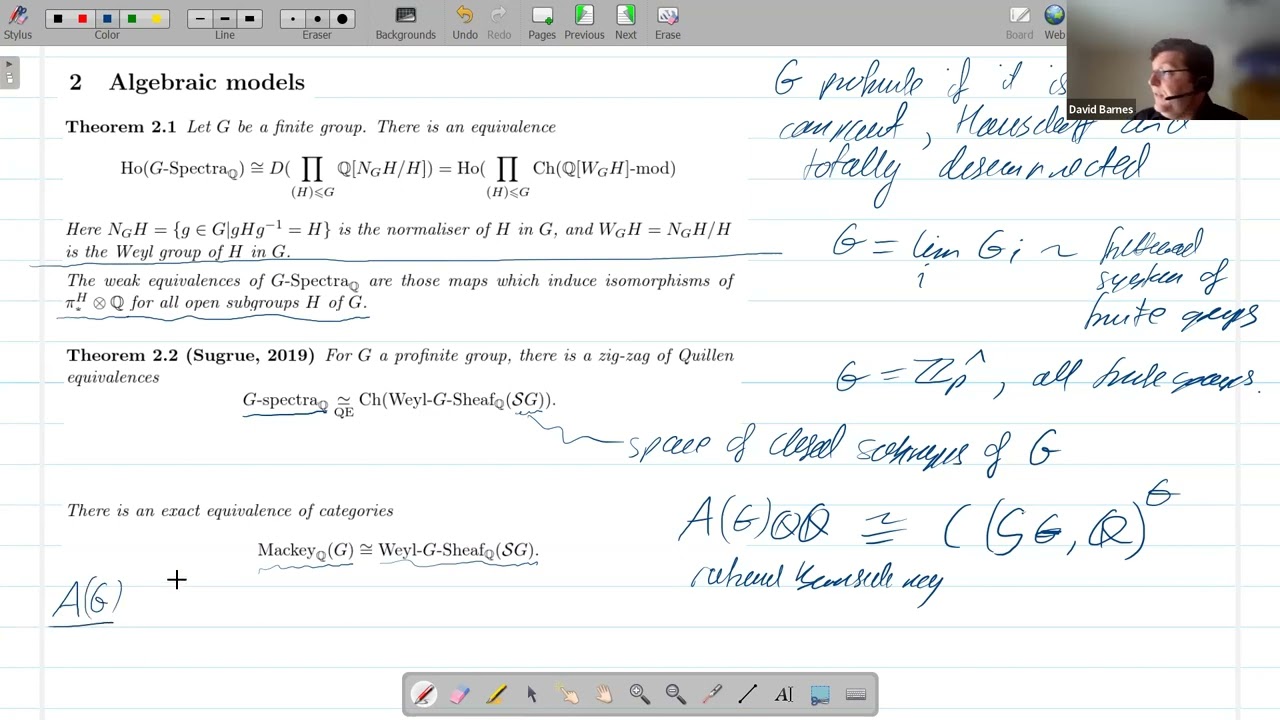 Stylus
Color
Line
Eraser
Backgrounds
Undo
Redo
Pages
Previous
Next
Erase
Board
Web
David Barnes
2 Algebraic models
Theorem 2.1 Let G be a finite group. There is an equivalence
Ho(G-Spectra_ℚ) ≅ D( ∏_{(H)⩽G} ℚ[N_G H/H]) = Ho( ∏_{(H)⩽G} Ch(ℚ[W_G H]-mod)
Here N_G H = {g ∈ G|gHg⁻¹ = H} is the normaliser of H in G, and W_G H = N_G H/H
is the Weyl group of H in G.
The weak equivalences of G-Spectra_ℚ are those maps which induce isomorphisms of
π_*^H ⊗ ℚ for all open subgroups H of G.
Theorem 2.2 (Sugrue, 2019) For G a profinite group, there is a zig-zag of Quillen
equivalences
G-spectra_ℚ ≃_QE Ch(Weyl-G-Sheaf_ℚ(𝒮G)).
There is an exact equivalence of categories
Mackey_ℚ(G) ≅ Weyl-G-Sheaf_ℚ(𝒮G).
A(G)
G profinite if it is
compact, Hausdorff and
totally disconnected
G = lim_i G_i ~ filtered
system of
finite groups
G = ℤ_p^∧, all finite groups.
space of closed subgroups of G
A(G)⊗ℚ ≅ C(SG, ℚ)^G
rational Burnside ring
AI